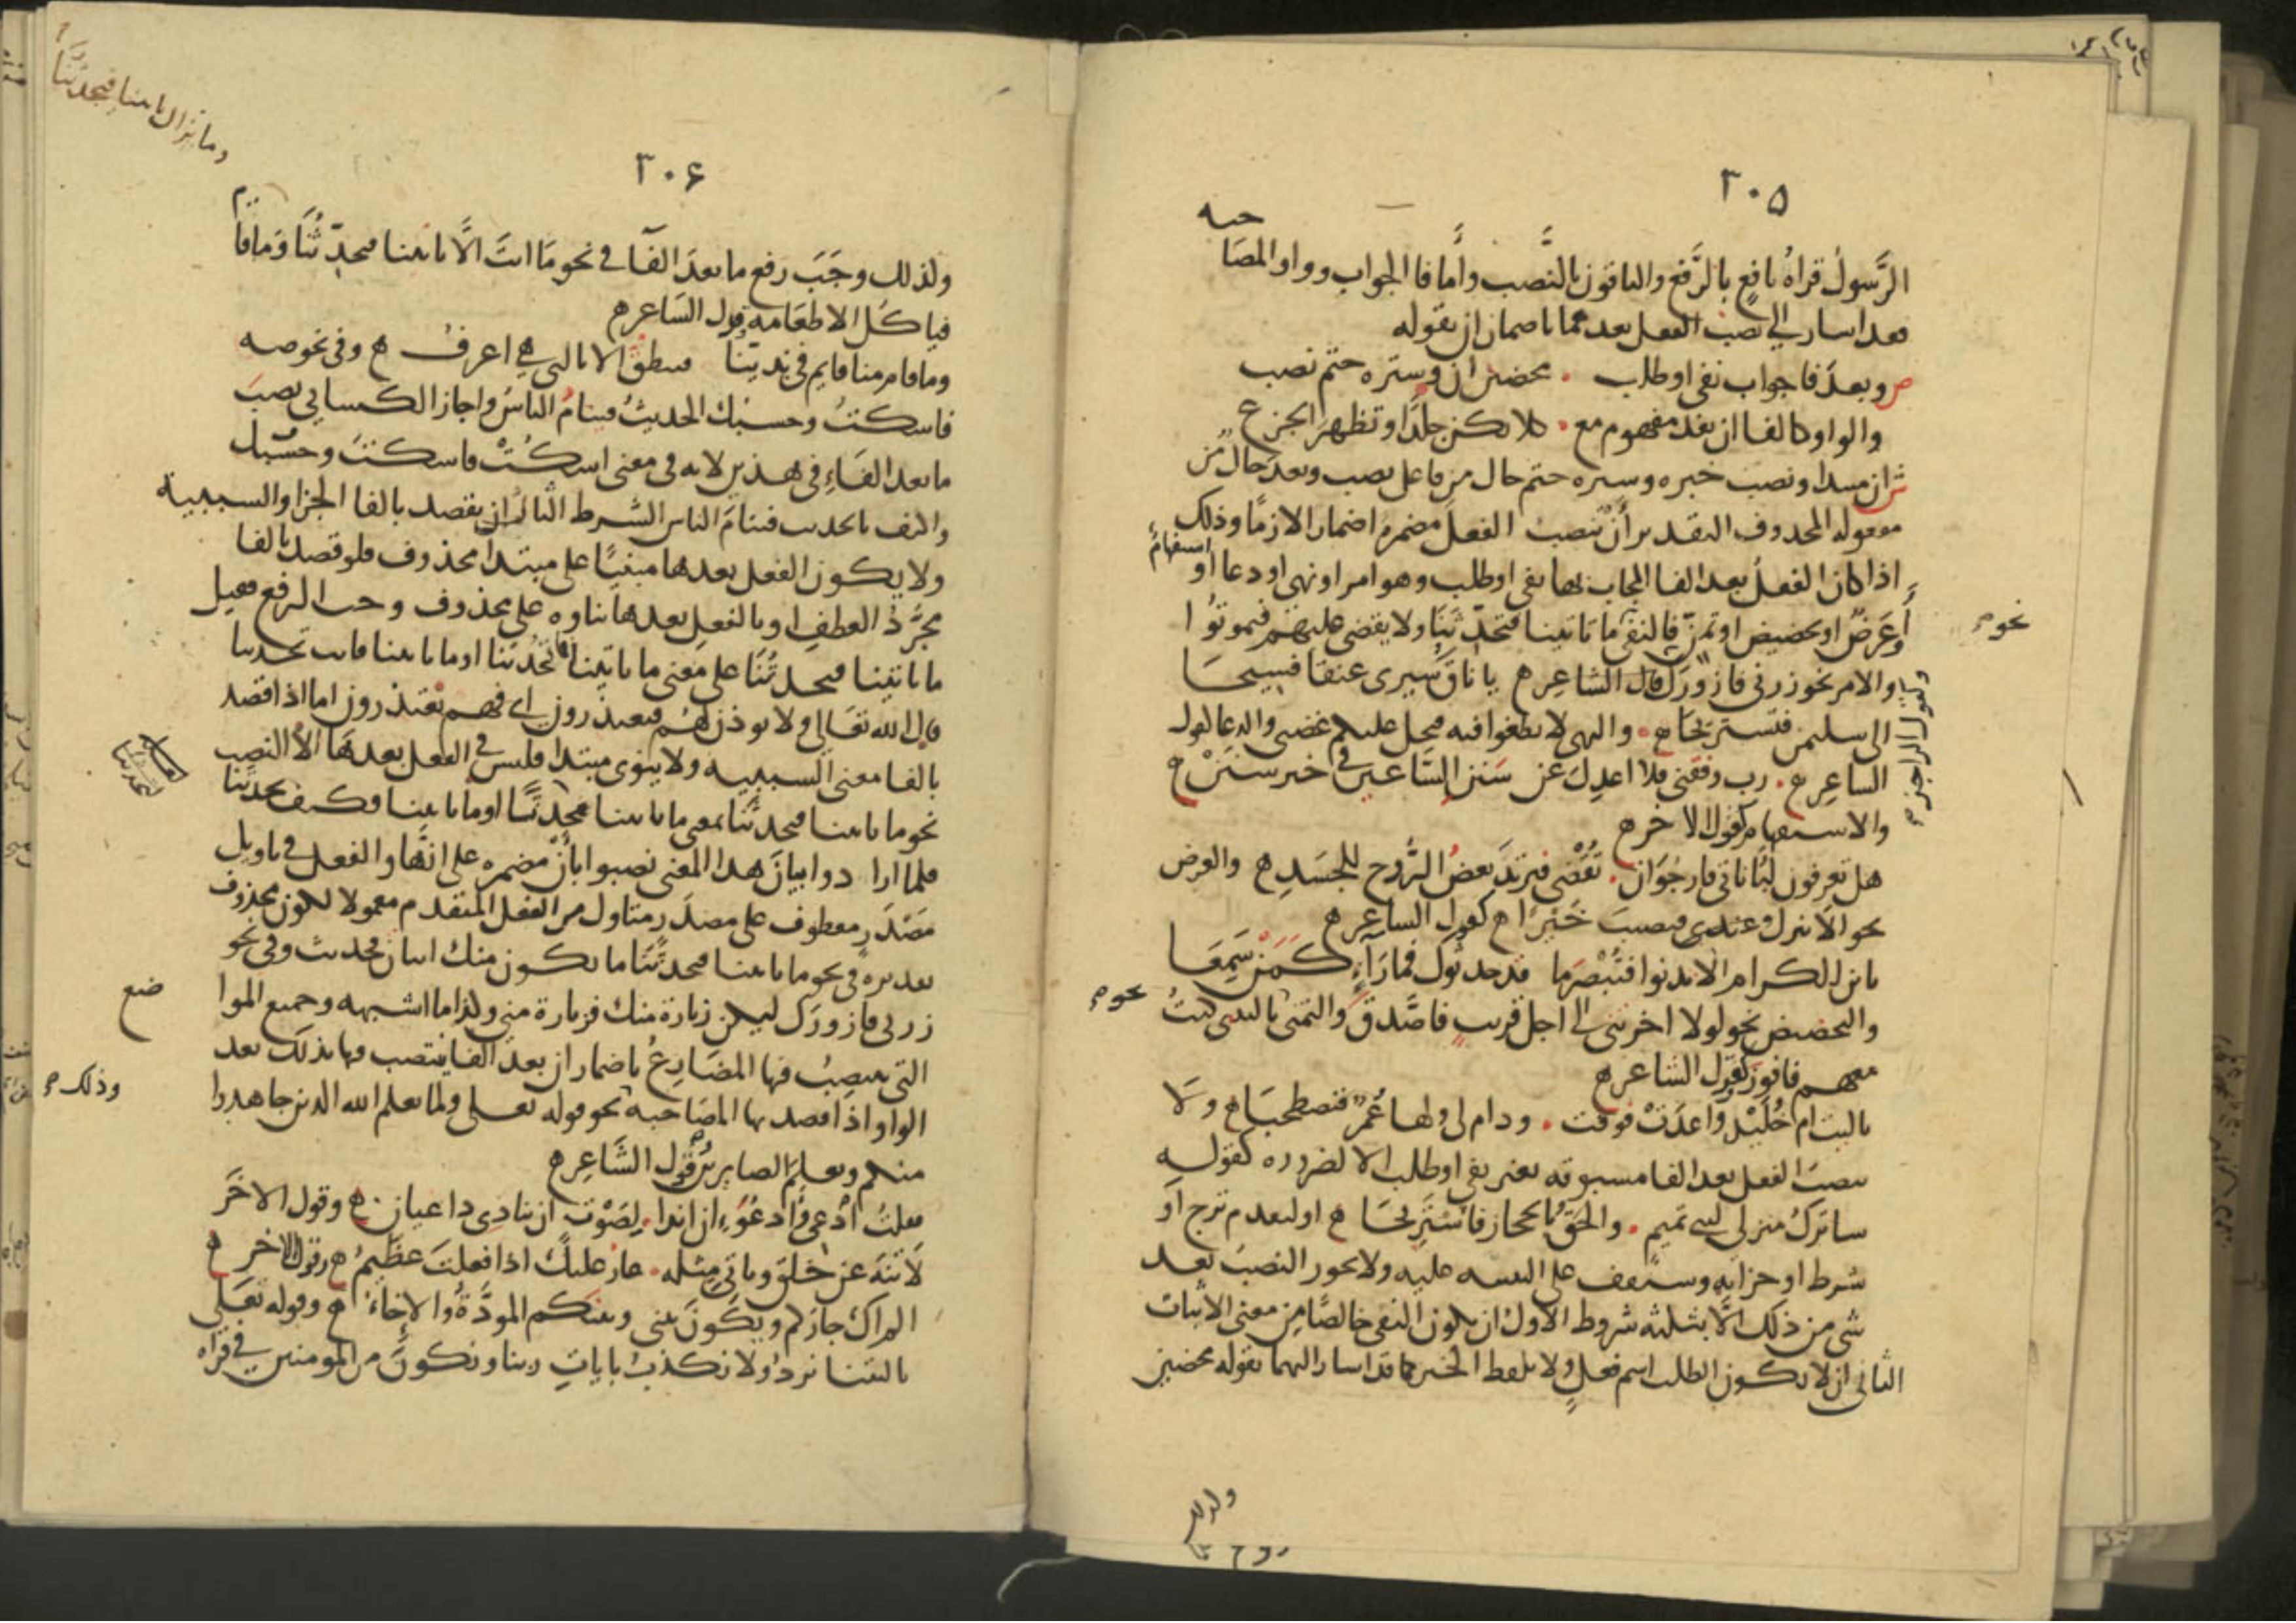 ٣٠٥
حبه
الرَّسولُ قراهُ نافع بالرَّفع والباقون بالنَّصب وأما فا الجواب وواو المصَا
فقد اسار الى نصب الفعل بعدهما باضمار ان بقوله
ص وبعدَ فا جواب نفى او طلب . محضين ان وستره حتم نصب
والواو كالفا ان تفد مفهوم مع . كلا تكن جلدًا وتظهر الجزع
ش ان مبتدا ونصب خبره وستره حتم حال من فاعل نصب وبعد حال من
مفعوله المحذوف التقدير أنْ تنصب الفعل مضمرة اضمارا لازمًا وذلك
اذا كان الفعلُ بعد الفا المجاب بها نفى او طلب وهو امر او نهى او دعا او استفهام
أو عَرضٌ او تحضيض او تمنّ فالنفى ما تاتينا فتحدّثنا ولا يقضى عليهم فيموتُوا
نحو
والامر نحو زرنى فازورَك قال الشاعِر ه يا ناقَ سيرى عنقا فسيحا
وكقول الراجز
الى سليمن فنستريحَا ه . والنهى لا تطغوا فيه فيحل عليكم غضبى والدعا كقول
الساعِر ه . رب وفقنى فلا اعدِلَ عن سَنن السَّاعين فى خير سنَنْ ه
والاستفهام كقول الاخر ه
هل تعرفون لُبَاناتى فارجُوَان . تُقْضَى فيرتدَ بعضُ الرُّوح للجَسَدِ ه والعرض
نحو الا تنزل عندى فتصيبَ خَيْرًا ه كقول الساعِر ه
يا بن الكرام الا تدنوا فتُبْصرَ ما قد حدثوك فما رَآءٍ كَمَنْ سَمِعَا
والتحضيض نحو لولا اخرتنى الى اجل قريبٍ فاصَّدق والتمنى ياليتنى كنتُ
نحو
معهم فافوزَ كقول الشاعر ه
ياليت ام خُلَيْدٍ وَاعدَتْ فوفت . ودام لى ولها عُمرٌ فنصطحبَا ه ولا
ينصبَ الفعل بعد الفا مسبوقه بغير نفى او طلب الا لضروره كقوله
ساترك منزلى لبنى تميم . والحَقُ بالحجاز فاسْتَرِيحَا ه او لبعدم ترج او
شرط او جزايه وستقف على التنبيه عليه ولا يجوز النصبَ بعد
شى من ذلك الَّا بثلثه شروط الاول ان يكون النفى خالصًا من معنى الاثبات
الثانى ان لا يكون الطلب اسم فعلٍ ولا بلفط الخبر كما قد اسار اليهما بقوله محضين
ولذلك
٣٠٦
وما تزال تاتينا فتحدثنا
ولذلك وجَبَ رفع ما بعدَ الفآ فى نحو مَا انتَ الَّا تاتينا فتحدّثُنَا وَما قا
م
فيا كُل الا طعَامه وقول السَاعر ه
وما قام منا قايم فى نديّنا فينطقُ الا بالتى هي اعرفُ ه وفى نحو صه
فاسكتُ وحسبُك الحديثُ فينامُ الناسُ واجاز الكسايى نصبَ
ما بعد الفَاءِ فى هذين لانه فى معنى اسكُتْ فاسكتَ وحسبُك
واكتف بالحديث فينامَ الناس الشرط الثالث ان يقصد بالفا الجزا والسببية
ولا يكون الفعل بعدها مبنيًا على مبتدا محذوف فلو قصد بالفا
مجرَّدُ العطفِ او بالفعل بعدها بناوه على محذوف وجب الرفع فيقول
ما تاتينا فتحدثُنَا على معنى ما تاتينا فما تحدثنا او ما تاتينا فانت تحدثنا
قال الله تعَالى ولا يوذن لهُم فيعتذرون اى فهم يعتذرون اما اذا قصد
بالفا معنى السببيه ولا ينوى مبتدا فليس فى الفعل بعدهَا الا النصب
نحو ما تاتينا فتحدثَنا بمعى ما تاتينا محدّثًا او ما تاتينا فكيف تحدثنا
فلما ارادوا بيان هذا المعنى نصبوا بأنْ مضمره على انها والفعل فى تاويل
مَصْدَرٍ معطوف على مصدَر متاول من الفعل المتقدم معمولا لكون محذوف
تقديره فى نحو ما تاتينا فتحدثنَا ما يكون منك اتيان فحديث وفى نحو
زرنى فازورَك ليكن زيارة منك فزيارة منى وكذا ما اشبهه وجميع الموا
ضع
التى ينصِبُ فيها المضَارِعُ باضمار ان بعد الفا ينتصب فيها بذلك بعد
وذلك
الواو اذا قصد بها المصَاحبه نحو قوله تعلى ولما يعلم الله الدين جاهدوا
منكم ويعلمَ الصابرين وقول الشَاعِر ه
فقلتُ ادْعِى وأَدعُوَ ان اندا . لصَوْت ان ينادى داعيان ه وقول الاخَر
لَا تنهَ عن خلق وتاتىَ مثله . عار عليكَ اذا فعلتَ عظِيمُ ه وقول الاخر ه
الم اك جاركم ويكونَ بينى وبينكم المودَّةُ والاخاءُ ه وقوله تعَلى
ياليتنا نردُ ولا نكذبَ بايات ربنا ونكونَ من المومنين فى قراه